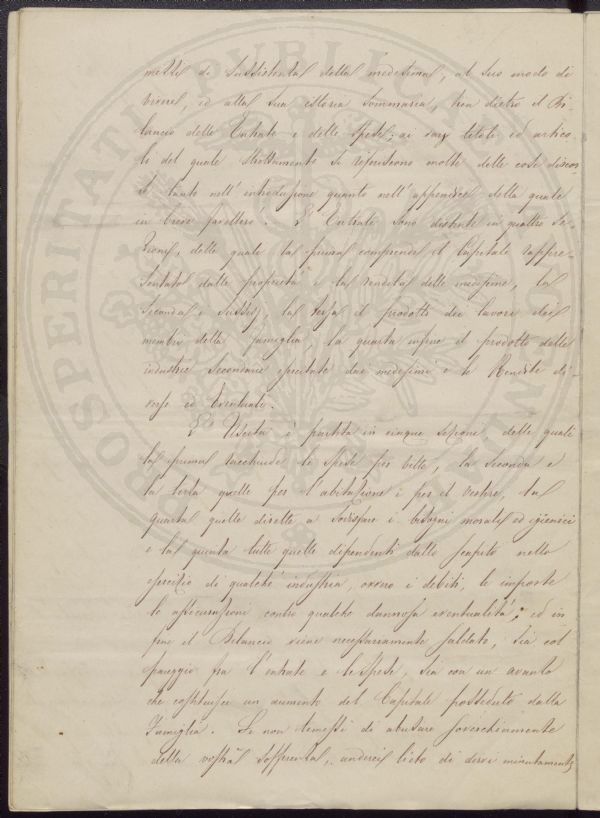 mezzi di sussistenza della medesima, al suo modo di
vivere, ed alla sua istoria sommaria, tien dietro il Bi-
lancio delle Entrate e delle Spese; ai vary titoli ed artico-
li del quale strettamente si riferiscono molte delle cose discor
se tanto nell'introduzione quanto nell'appendice della quale
in breve parleremo. L'Entrate sono distinte in quattro Se-
zioni, delle quali la prima comprende il Capitale rappre-
sentato dalle proprietà e la rendita delle medesime, la
Seconda i Sussidj, la terza il prodotto dei lavori dei
membri della famiglia, la quarta infine il prodotto delle
industrie Secondarie esercitate dai medesimi e le Rendite di-
verse ed Eventuali.
L'Uscita è partita in cinque Sezioni delle quali
la prima racchiude le Spese per vitto, la Seconda e
la terza quelle per l'abitazione e per il vestire, la
quarta quelle dirette a Sodisfare i bisogni morali ed igienici
e la quinta tutte quelle dipendenti dallo scapito nello
esercizio di qualche industria, ovvero i debiti, le imposte
le assicurazioni contro qualche dannosa eventualità; ed in
fine il Bilancio viene necessariamente saldato, Sia col
pareggio fra l'entrate e le Spese, Sia con un avanzo
che costituisce un aumento del Capitale posseduto dalla
Famiglia. Se non temessi di abusare soverchiamente
della vostra Sofferenza, lieto di dirvi minutamente
PROSPERITATI PVBLICAE